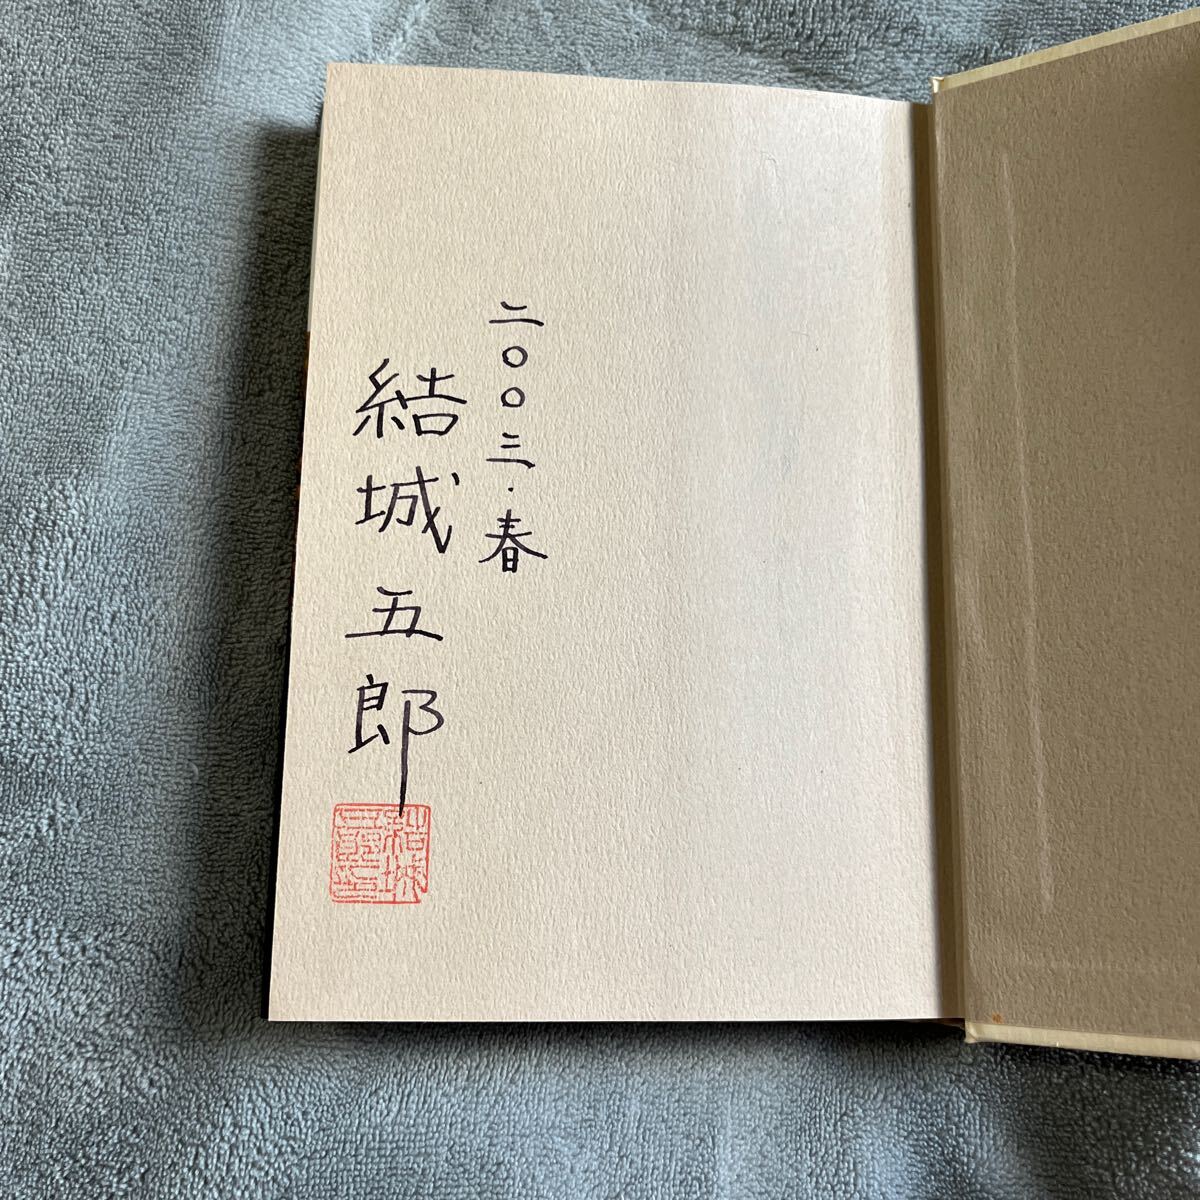 二〇〇三・春
結城五郎
結城
五郎印